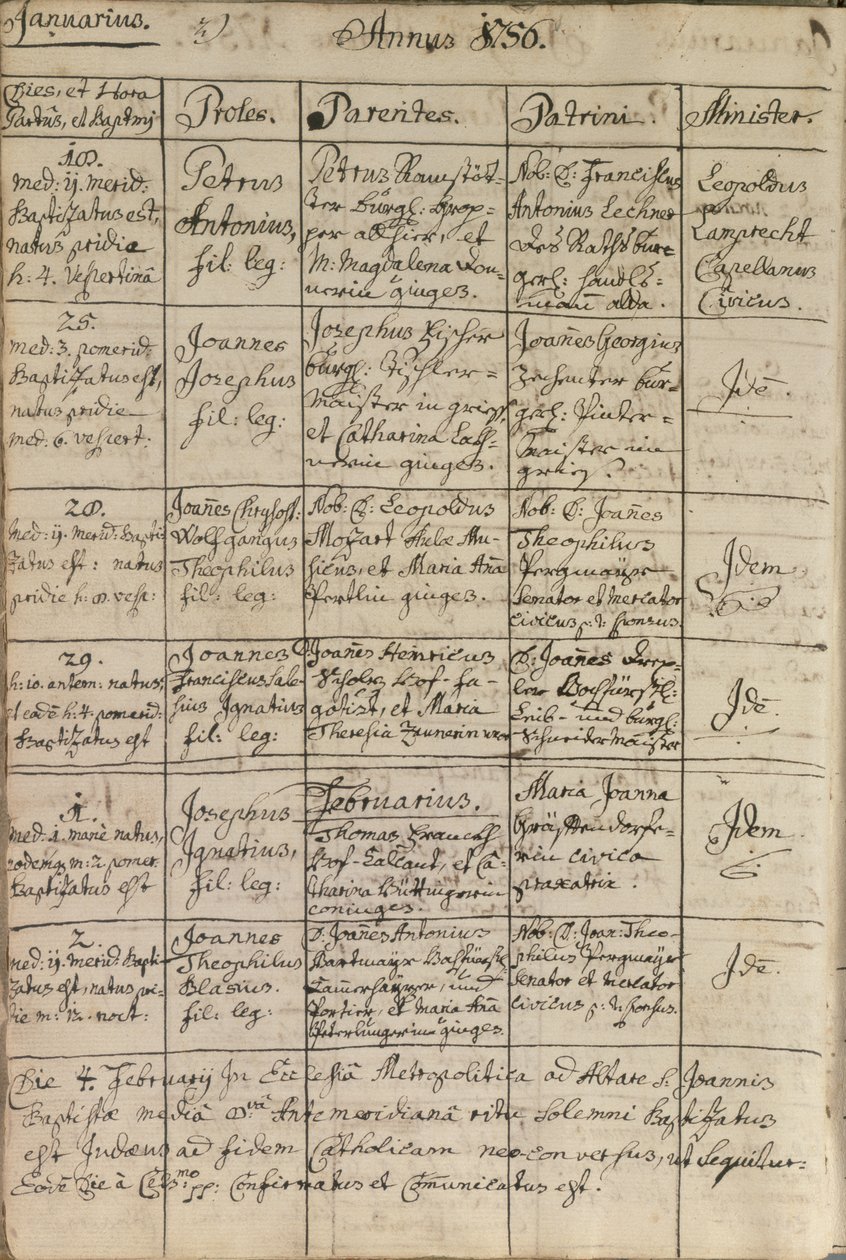 Januarius.
2)
Annus 1756.
Dies, et Hora
Partûs, et Baptmj
Proles.
Parentes.
Patrini.
Minister.
18.
med: 11. merid:
Baptizatus est,
natus pridie
h: 4. Vespertinâ
Petrus
Antonius,
fil: leg:
Petrus Ramstöt-
ter bürgl:
per allhier, et
M: Magdalena
nerin ginges.
Nob: D: Franciscus
Antonius Lechner
des Raths bur-
gerl: Handls-
mann alda.
Leopoldus
Lamprecht
Capellanus
Civicus.
25.
med: 3. pomerid:
Baptizatus est,
natus pridie
med: 6. vespert:
Joannes
Josephus
fil: leg:
Josephus Fischer
bürgl: Tischler-
maister in grieß,
et Catharina
nerin ginges.
Joannes Georgius
Zehenter bur-
gerl: Pinter-
maister im
grieß.
Idē.
28.
med: 11. merid: Bapti
zatus est: natus
pridie h: 8. vesp:
Joañes Chrysost:
Wolfgangus
Theophilus
fil: leg:
Nob: D: Leopoldus
Mozart Aulæ Mu-
sicus, et Maria Aña
Pertlin giuges.
Nob: D: Joañes
Theophilus
Pergmaÿr
Senator et Mercator
civicus p: t: sponsus.
Idem
29.
h: 10. antem: natus,
et eodē h: 4. pomerid:
Baptizatus est
Joannes
Franciscus Sale-
sius Ignatius
fil: leg:
D: Joañes Henricus
Scholz Hof-Fa-
gotist, et Maria
Theresia Zaunerin uxor
D: Joañes
ler Hochfürstl:
Leib- und bürgl:
Schneider Maister
Idē.
Februarius.
1.
med: 1. manè natus,
eodemq m: 2. pomer:
Baptizatus est
Josephus
Ignatius,
fil: leg:
Thomas
Hof-Calcant, et Ca-
tharina
coniuges.
Maria Joanna
Gräffendorfe-
rin civica
praxatrix.
Idem
2.
med: 11. merid: Bapti-
zatus est, natus pri-
die m: 12. noct:
Joannes
Theophilus
Blasius.
fil: leg:
D: Joañes Antonius
Hartmayr Hochfürstl:
und
Portier, et Maria Aña
Peterlungerin giuges
Nob: D: Joan: Theo-
philus Pergmayr
Senator et Mercator
civicus p: t: sponsus.
Idē.
Die 4. Februarij In Ecclesiâ Metropolitica ad Altare S: Joannis
Baptistæ mediâ 8.vâ Antemeridianâ ritu solemni Baptizatus
est Judæus ad fidem Catholicam neo-conversus, ut sequitur.
Eodē die à Cels:mo pp: Confirmatus et Comunicatus est.